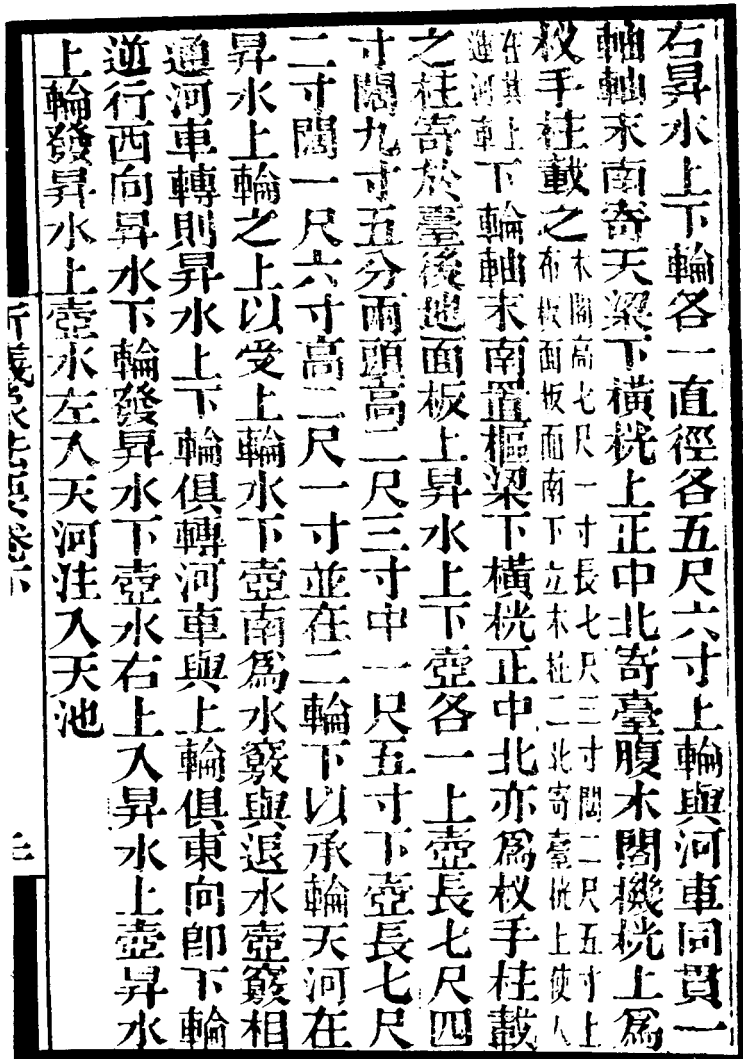 右昇水上下輪各一直徑各五尺六寸上輪與河車同貫一
軸軸末南寄天梁下橫桄上正中北寄臺腹木閣機桄上為
杈手柱載之木閣高七尺一寸長七尺三寸闊二尺五寸上
布板面板面南下立木柱二北寄臺桄上使人
在其上
運河車下輪軸末南置樞梁下橫桄正中北亦為杈手柱載
之柱寄於臺後地面板上昇水上下壺各一上壺長七尺四
寸闊九寸五分兩頭高二尺三寸中一尺五寸下壺長七尺
二寸闊一尺六寸高二尺一寸並在二輪下以承輪天河在
昇水上輪之上以受上輪水下壺南為水竅與退水壺竅相
通河車轉則昇水上下輪俱轉河車與上輪俱東向即下輪
逆行西向昇水下輪發昇水下壺水右上入昇水上壺昇水
上輪發昇水上壺水左入天河注入天池
新儀象法要卷下